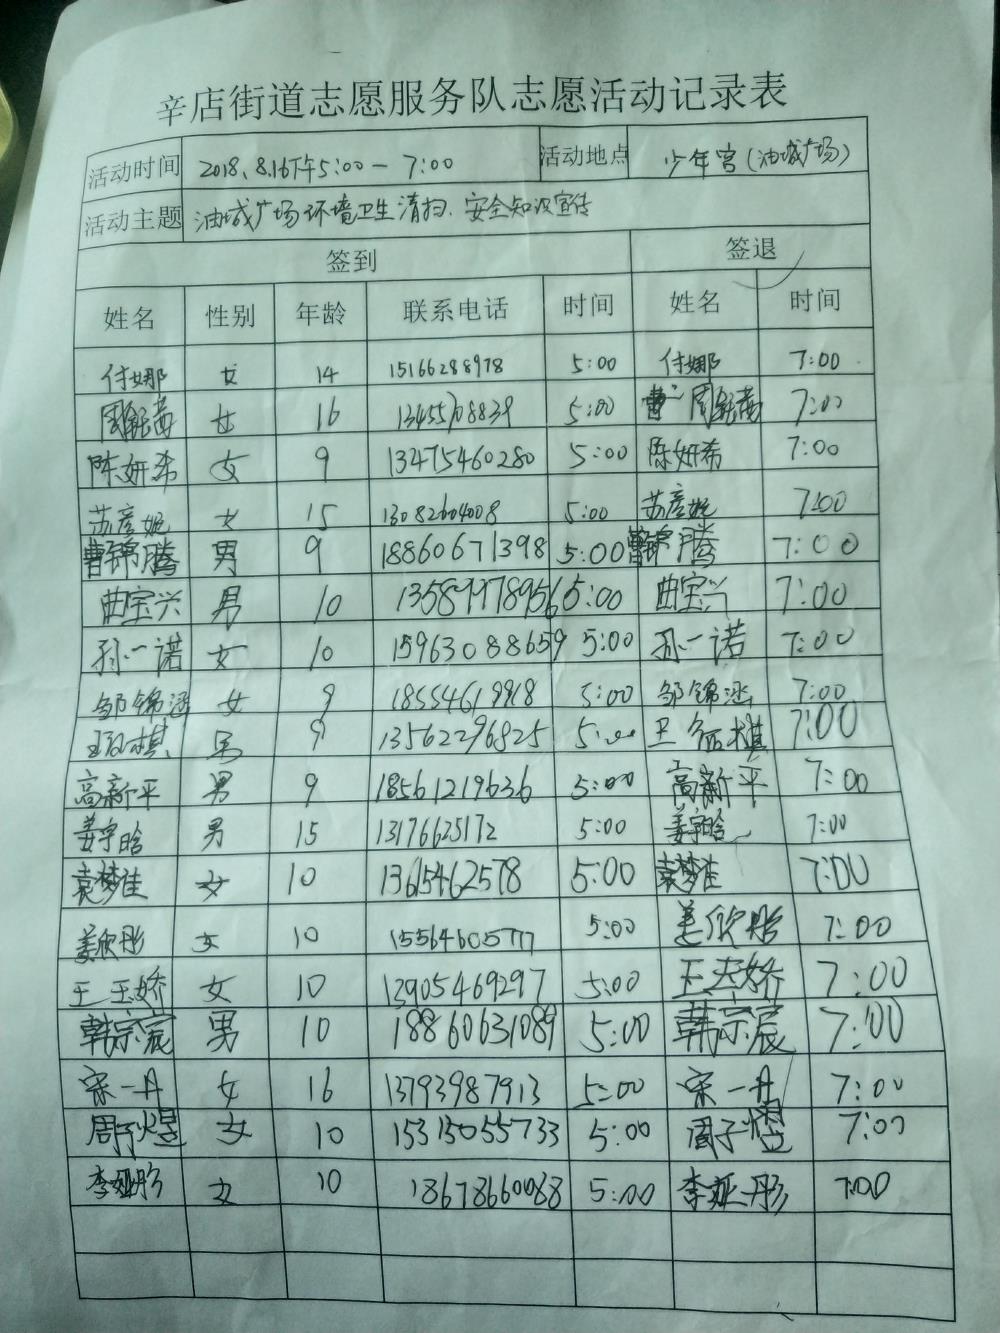 辛店街道志愿服务队志愿活动记录表
活动时间 2018.8.16下午5:00-7:00 活动地点 少年宫(油城广场)
活动主题 油城广场环境卫生清扫、安全知识宣传
签到 签退
姓名 性别 年龄 联系电话 时间 姓名 时间
付娜 女 14 15166288978 5:00 付娜 7:00
女 16 13455708839 5:00 7:00
陈妍希 女 9 13475460280 5:00 陈妍希 7:00
苏彦妮 女 15 13082604008 5:00 苏彦妮 7:00
曹锦腾 男 9 18860671398 5:00 曹锦腾 7:00
曲宝兴 男 10 13589978956 5:00 曲宝兴 7:00
孙一诺 女 10 15963088659 5:00 孙一诺 7:00
邹锦涵 女 9 18554619918 5:00 邹锦涵 7:00
男 9 13562296825 5:00 7:00
高新平 男 9 18561219636 5:00 高新平 7:00
姜宇晗 男 15 13176625172 5:00 姜宇晗 7:00
袁梦佳 女 10 13615462578 5:00 袁梦佳 7:00
姜欣彤 女 10 15564605777 5:00 姜欣彤 7:00
王玉娇 女 10 13905469297 5:00 王玉娇 7:00
韩宗宸 男 10 18860631089 5:00 韩宗宸 7:00
宋一丹 女 16 13793987913 5:00 宋一丹 7:00
周子煜 女 10 15315055733 5:00 周子煜 7:00
李亚彤 女 10 18678660088 5:00 李亚彤 7:00